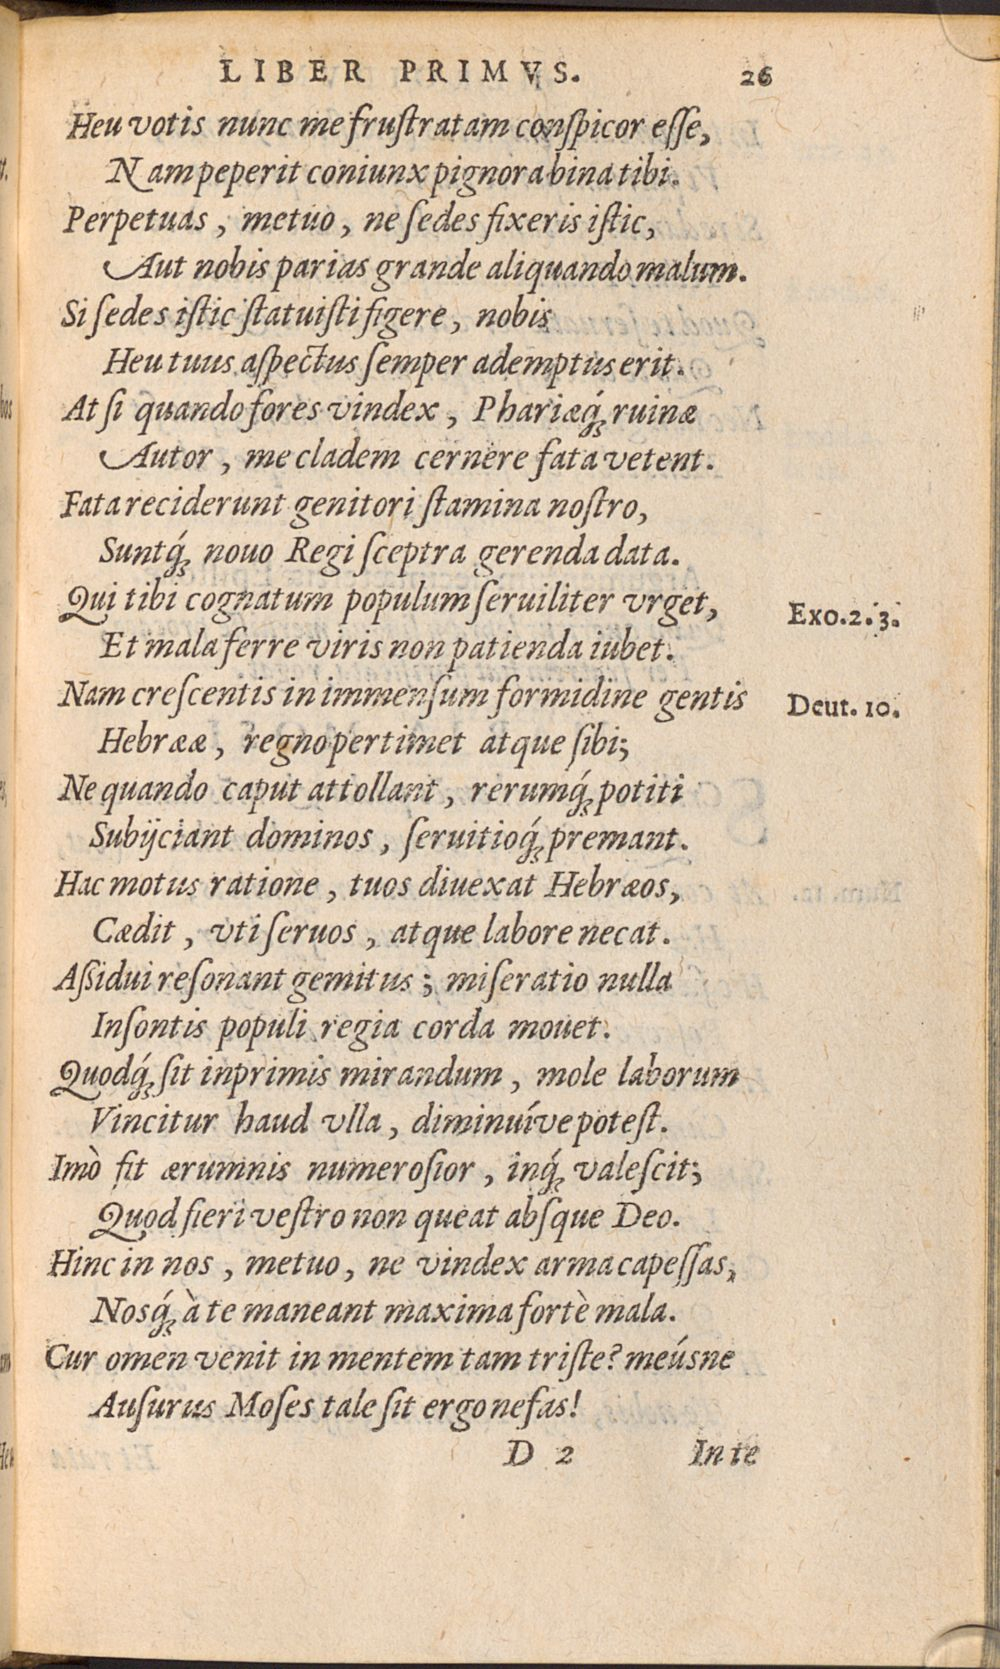 LIBER PRIMVS. 26
Heu votis nunc me fruſtratam conſpicor eſſe,
Nam peperit coniunx pignora bina tibi.
Perpetuas, metuo, ne ſedes fixeris iſtic,
Aut nobis parias grande aliquando malum.
Si ſedes iſtic ſtatuiſti figere, nobis
Heu tuus aſpectus ſemper ademptus erit.
At ſi quando fores vindex, Phariæq́; ruinæ
Autor, me cladem cernere fata vetent.
Fata reciderunt genitori ſtamina noſtro,
Suntq́; nouo Regi ſceptra gerenda data.
Qui tibi cognatum populum ſeruiliter vrget,
Exo.2.3.
Et mala ferre viris non patienda iubet.
Nam creſcentis in immenſum formidine gentis
Deut. 10.
Hebrææ, regno pertimet atque ſibi;
Ne quando caput attollant, rerumq́; potiti
Subijciant dominos, ſeruitioq́; premant.
Hac motus ratione, tuos diuexat Hebræos,
Cædit, vti ſeruos, atque labore necat.
Aßidui reſonant gemitus; miſeratio nulla
Inſontis populi regia corda mouet.
Quodq́; ſit inprimis mirandum, mole laborum
Vincitur haud vlla, diminuíve poteſt.
Imò fit ærumnis numeroſior, inq́; valeſcit;
Quod fieri veſtro non queat abſque Deo.
Hinc in nos, metuo, ne vindex arma capeſſas,
Nosq́; à te maneant maxima fortè mala.
Cur omen venit in mentem tam triſte? meúsne
Auſurus Moſes tale ſit ergo nefas!
D 2 In te